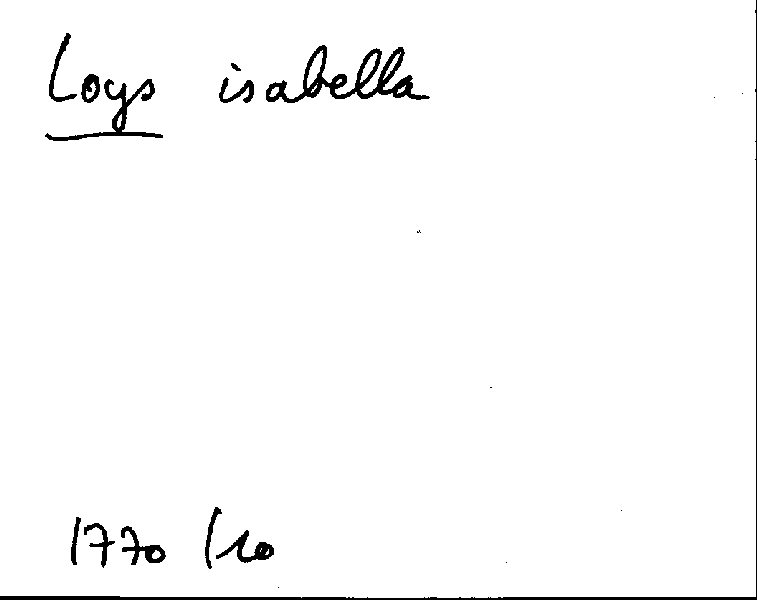 Loys isabella
1770/20